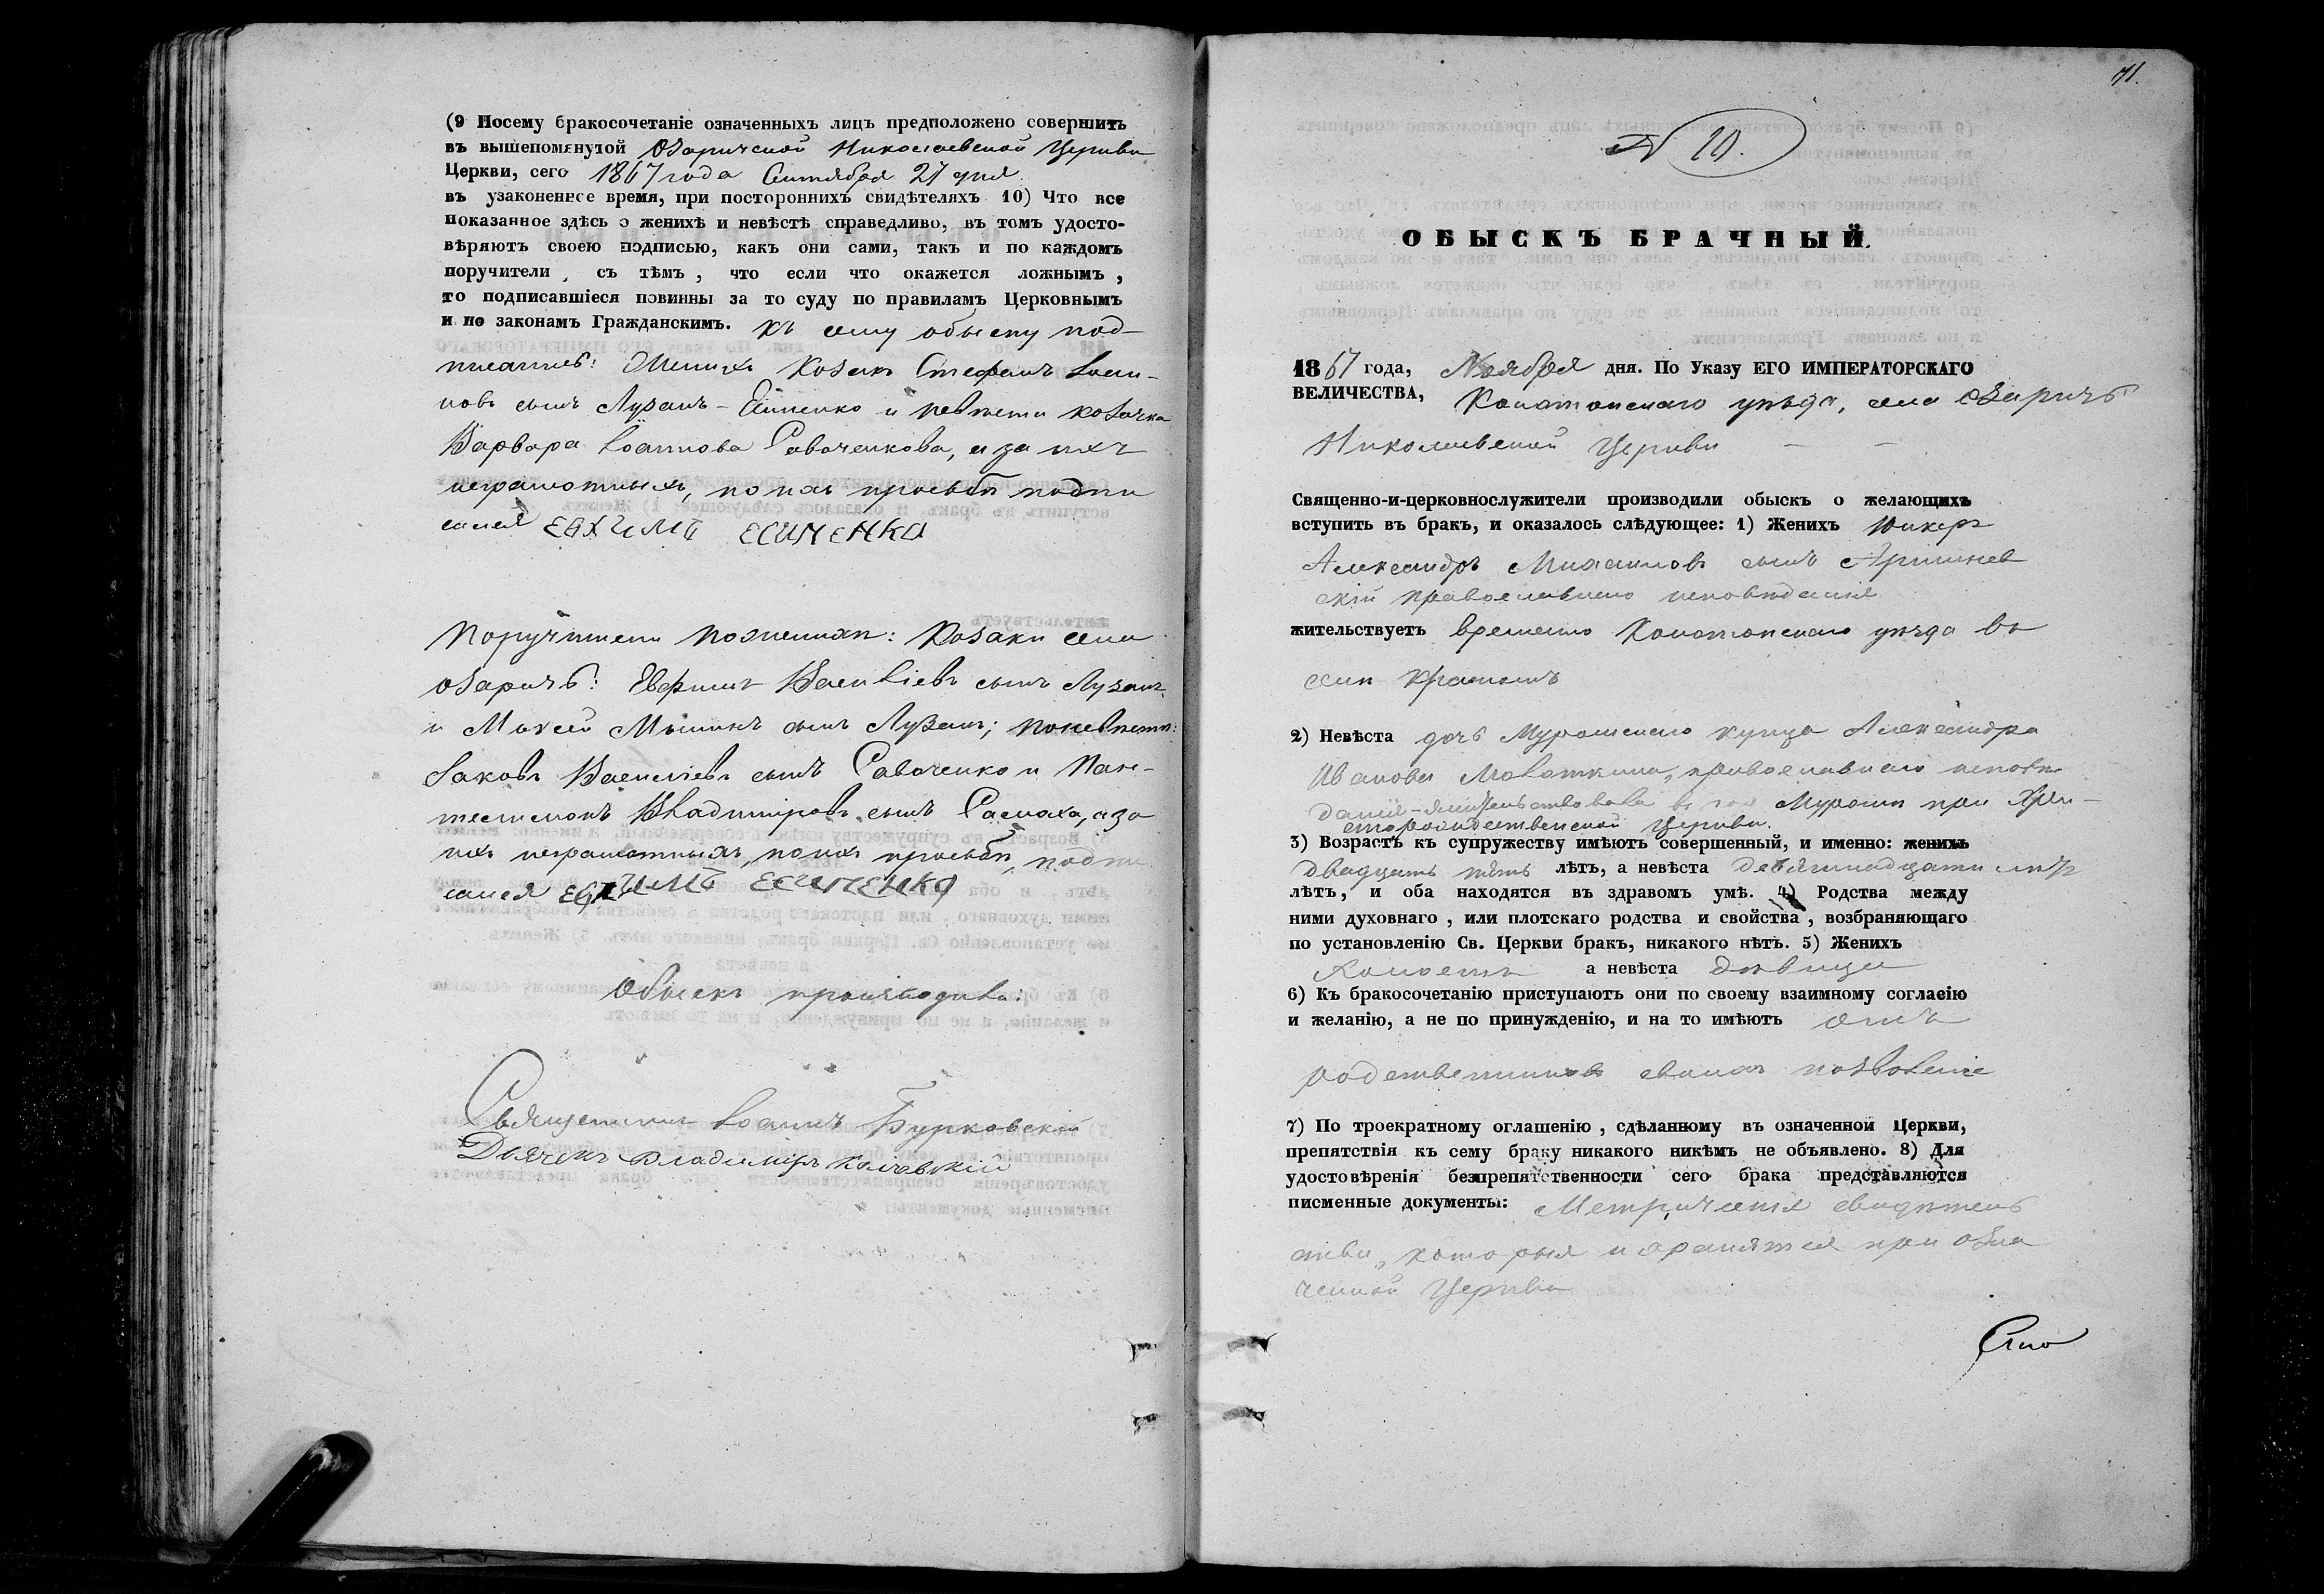 (9 Посему бракосочетаніе означенныхъ лицъ предположено совершить
въ вышепомянутой Озаричской Николаевской Церкви
Церкви, сего 1867 года Сентября 27 дня
въ узаконенное время, при постороннихъ свидѣтеляхъ 10) Что все
показанное здѣсь о женихѣ и невѣстѣ справедливо, въ томъ удосто-
вѣряютъ своею подписью, какъ они сами, такъ и по каждомъ
поручители, съ тѣмъ, что если что окажется ложнымъ,
то подписавшіеся повинны за то суду по правиламъ Церковнымъ
и по законамъ Гражданскимъ. Къ сему обыску под-
писались: Женихъ Козакъ Стефанъ Іоан-
новъ сынъ Лузанъ-Есипенко и невѣста козачка
Варвара Іоаннова Савоченкова, а за ихъ
неграмотныхъ, по ихъ прозьбѣ подпи
сался ЕѲХИМЪ ЕСИПЕНКО
Поручители по женихѣ: Козаки села
Озаричъ: Евфимъ Василіевъ сынъ Лузанъ
и Моксей сынъ Лузанъ; по невѣстѣ:
Іаковъ Василіевъ сынъ Савоченко и Пан-
телимонъ Владиміровъ сынъ Самоха, а за
ихъ неграмотныхъ, по ихъ прозьбѣ, подпи
сался ЕѲХИМЪ ЕСИПЕНКО
Обыскъ производили:
Священникъ Іоаннъ Бурковскій
Дьячекъ Владимиръ
71.
№ 10.
ОБЫСКЪ БРАЧНЫЙ.
1867 года, Ноября дня. По Указу ЕГО ИМПЕРАТОРСКАГО
ВЕЛИЧЕСТВА, Конотопскаго уѣзда, села Озаричъ
Николаевской Церкви — —
Священно-и-церковнослужители производили обыскъ о желающихъ
вступить въ бракъ, и оказалось слѣдующее: 1) Женихъ Юнкеръ
Александръ Михаиловъ сынъ
скій православнаго исповѣданія
жительствуетъ временно Конотопскаго уѣзда въ
селѣ Красномъ
2) Невѣста дочь Муромскаго купца Александра
Иванова православнаго исповѣ
данія - жительствовала въ гор. Муромѣ при Хри-
сторождественской Церкви.
3) Возрастъ къ супружеству имѣютъ совершенный, и именно: женихъ
двадцать пять лѣтъ, а невѣста девятнадцати лѣтъ
лѣтъ, и оба находятся въ здравомъ умѣ. 4) Родства между
ними духовнаго, или плотскаго родства и свойства, возбраняющаго
по установленію Св. Церкви бракъ, никакого нѣтъ. 5) Женихъ
Холостъ а невѣста дѣвица
6) Къ бракосочетанію приступаютъ они по своему взаимному согласію
и желанію, а не по принужденію, и на то имѣютъ отъ
родственниковъ своихъ позволеніе
7) По троекратному оглашенію, сдѣланному въ означенной Церкви,
препятствія къ сему браку никакого никѣмъ не объявлено. 8) Для
удостовѣренія безпрепятственности сего брака представляются
писменные документы: Метрическія свидѣтель
ства, которыя и хранятся при озна
ченной Церкви